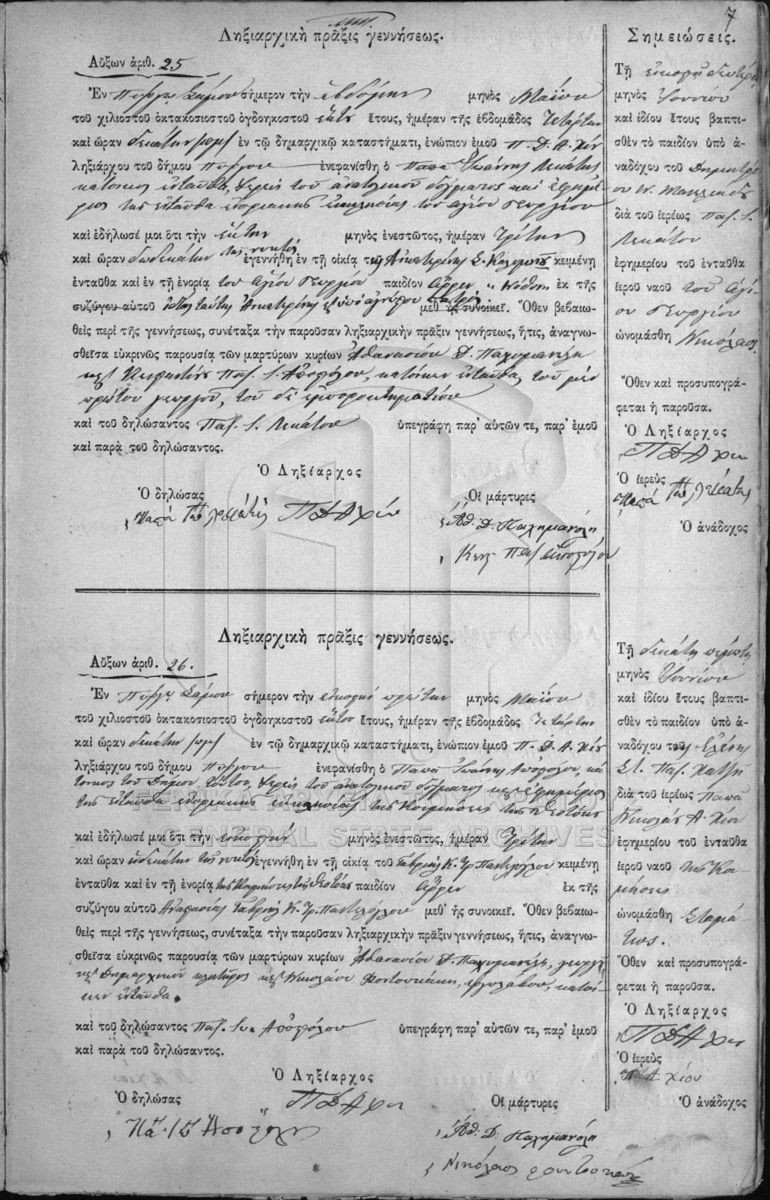 7
Ληξιαρχικὴ πρᾶξις γεννήσεως.
Αὔξων ἀριθ. 25
Ἐν Πύργῳ Σάμου σήμερον τὴν ἑβδόμην μηνὸς Μαΐου
τοῦ χιλιοστοῦ ὀκτακοσιοστοῦ ὀγδοηκοστοῦ ἕκτου ἔτους, ἡμέραν τῆς ἑβδομάδος Τετάρτην
καὶ ὥραν δεκάτην π.μ. ἐν τῷ δημαρχικῷ καταστήματι, ἐνώπιον ἐμοῦ Π. Δ. Α. Χίου
ληξιάρχου τοῦ δήμου Πύργου ἐνεφανίσθη ὁ Παπᾶ Ἰωάννης Λεκάτης
κάτοικος ἐνταῦθα, ἱερεὺς τοῦ ἀνατολικοῦ δόγματος καὶ ἐφημέ-
ριος τῆς ἐνταῦθα ἐνοριακῆς ἐκκλησίας τοῦ ἁγίου Γεωργίου
καὶ ἐδήλωσέ μοι ὅτι τὴν ἕκτην μηνὸς ἐνεστῶτος, ἡμέραν Τρίτην
καὶ ὥραν δωδεκάτην τῆς νυκτὸς ἐγεννήθη ἐν τῇ οἰκίᾳ τῆς Αἰκατερίνης Σ. κειμένῃ
ἐνταῦθα καὶ ἐν τῇ ἐνορίᾳ τοῦ ἁγίου Γεωργίου παιδίον ἄρρεν „ Νόθον „ ἐκ τῆς
συζύγου αὐτοῦ ταύτης Αἰκατερίνης ἐξ ἀγνώστου πατρός μεθ᾽ ἧς συνοικεῖ. Ὅθεν βεβαιω-
θεὶς περὶ τῆς γεννήσεως, συνέταξα τὴν παροῦσαν ληξιαρχικὴν πρᾶξιν γεννήσεως, ἥτις, ἀναγνω-
σθεῖσα εὐκρινῶς παρουσίᾳ τῶν μαρτύρων κυρίων Ἀθανασίου Δ. Παλημανώλη
κατοίκων ἐνταῦθα, τοῦ μὲν
πρώτου γεωργοῦ, τοῦ δὲ
καὶ τοῦ δηλώσαντος Παπ. Ἰ. Λεκάτου ὑπεγράφη παρ᾽ αὐτῶν τε, παρ᾽ ἐμοῦ
καὶ παρὰ τοῦ δηλώσαντος.
Ὁ Ληξίαρχος
Ὁ δηλώσας Π Δ Α Χίου Οἱ μάρτυρες
Παπᾶ Ἰω Λεκάτης Ἀθ. Δ. Παλημανώλη
Σημειώσεις.
Τῇ εἰκοστῇ δευτέρᾳ
μηνὸς Ἰουνίου
καὶ ἰδίου ἔτους βαπτι-
σθὲν τὸ παιδίον ὑπὸ ἀ-
ναδόχου τοῦ Δημητρί-
ου
διὰ τοῦ ἱερέως Παπ. Ἰ.
Λεκάτου
ἐφημερίου τοῦ ἐνταῦθα
ἱεροῦ ναοῦ τοῦ Ἁγί-
ου Γεωργίου
ὠνομάσθη Νικόλαος
Ὅθεν καὶ προσυπογρά-
φεται ἡ παροῦσα.
Ὁ Ληξίαρχος
Π Δ Α Χίου
Ὁ ἱερεὺς
Παπᾶ Ἰω Λεκάτης
Ὁ ἀνάδοχος
Ληξιαρχικὴ πρᾶξις γεννήσεως.
Αὔξων ἀριθ. 26.
Ἐν Πύργῳ Σάμου σήμερον τὴν εἰκοστὴν πρώτην μηνὸς Μαΐου
τοῦ χιλιοστοῦ ὀκτακοσιοστοῦ ὀγδοηκοστοῦ ἕκτου ἔτους, ἡμέραν τῆς ἑβδομάδος Τετάρτην
καὶ ὥραν δεκάτην π.μ. ἐν τῷ δημαρχικῷ καταστήματι, ἐνώπιον ἐμοῦ Π. Δ. Α. Χίου
ληξιάρχου τοῦ δήμου Πύργου ἐνεφανίσθη ὁ Παπᾶ Ἰωάννης Ἀποστόλου, κά-
τοικος τοῦ Δήμου τούτου, ἱερεὺς τοῦ ἀνατολικοῦ δόγματος καὶ ἐφημέριος
τῆς ἐνταῦθα ἐνοριακῆς ἐκκλησίας τῆς Κοιμήσεως τῆς Θεοτόκου
καὶ ἐδήλωσέ μοι ὅτι τὴν εἰκοστὴν μηνὸς ἐνεστῶτος, ἡμέραν Τρίτην
καὶ ὥραν ἑνδεκάτην τῆς νυκτὸς ἐγεννήθη ἐν τῇ οἰκίᾳ τοῦ Γαβριὴλ Κ. κειμένῃ
ἐνταῦθα καὶ ἐν τῇ ἐνορίᾳ τῆς Κοιμήσεως τῆς Θεοτόκου παιδίον ἄρρεν ἐκ τῆς
συζύγου αὐτοῦ Ἀναστασίας Γαβριὴλ Κ. μεθ᾽ ἧς συνοικεῖ. Ὅθεν βεβαιω-
θεὶς περὶ τῆς γεννήσεως, συνέταξα τὴν παροῦσαν ληξιαρχικὴν πρᾶξιν γεννήσεως, ἥτις, ἀναγνω-
σθεῖσα εὐκρινῶς παρουσίᾳ τῶν μαρτύρων κυρίων Ἀθανασίου Δ. Παλημανώλη,
Δημαρχικοῦ κλητῆρος καὶ Νικολάου Φουντουκάκη, ἐργολάβου, κατοί-
κων ἐνταῦθα.
καὶ τοῦ δηλώσαντος Παπ. Ἰω. Ἀποστόλου ὑπεγράφη παρ᾽ αὐτῶν τε, παρ᾽ ἐμοῦ
καὶ παρὰ τοῦ δηλώσαντος.
Ὁ Ληξίαρχος
Ὁ δηλώσας Π Δ Α Χίου Οἱ μάρτυρες
Ἀθ. Δ. Παλημανώλη
Νικόλαος
Τῇ δεκάτῃ πέμπτῃ
μηνὸς Ἰουνίου
καὶ ἰδίου ἔτους βαπτι-
σθὲν τὸ παιδίον ὑπὸ ἀ-
ναδόχου τῆς Ἑλένης
Στ. Παπ. Χατζῆ
διὰ τοῦ ἱερέως Παπᾶ
Νικολάου Α. Χίου
ἐφημερίου τοῦ ἐνταῦθα
ἱεροῦ ναοῦ τῆς Κοι-
μήσεως
ὠνομάσθη Σταμά-
τιος.
Ὅθεν καὶ προσυπογρά-
φεται ἡ παροῦσα.
Ὁ Ληξίαρχος
Π Δ Α Χίου
Ὁ ἱερεὺς
Π Ν Α Χίου
Ὁ ἀνάδοχος
GENERAL STATE ARCHIVES